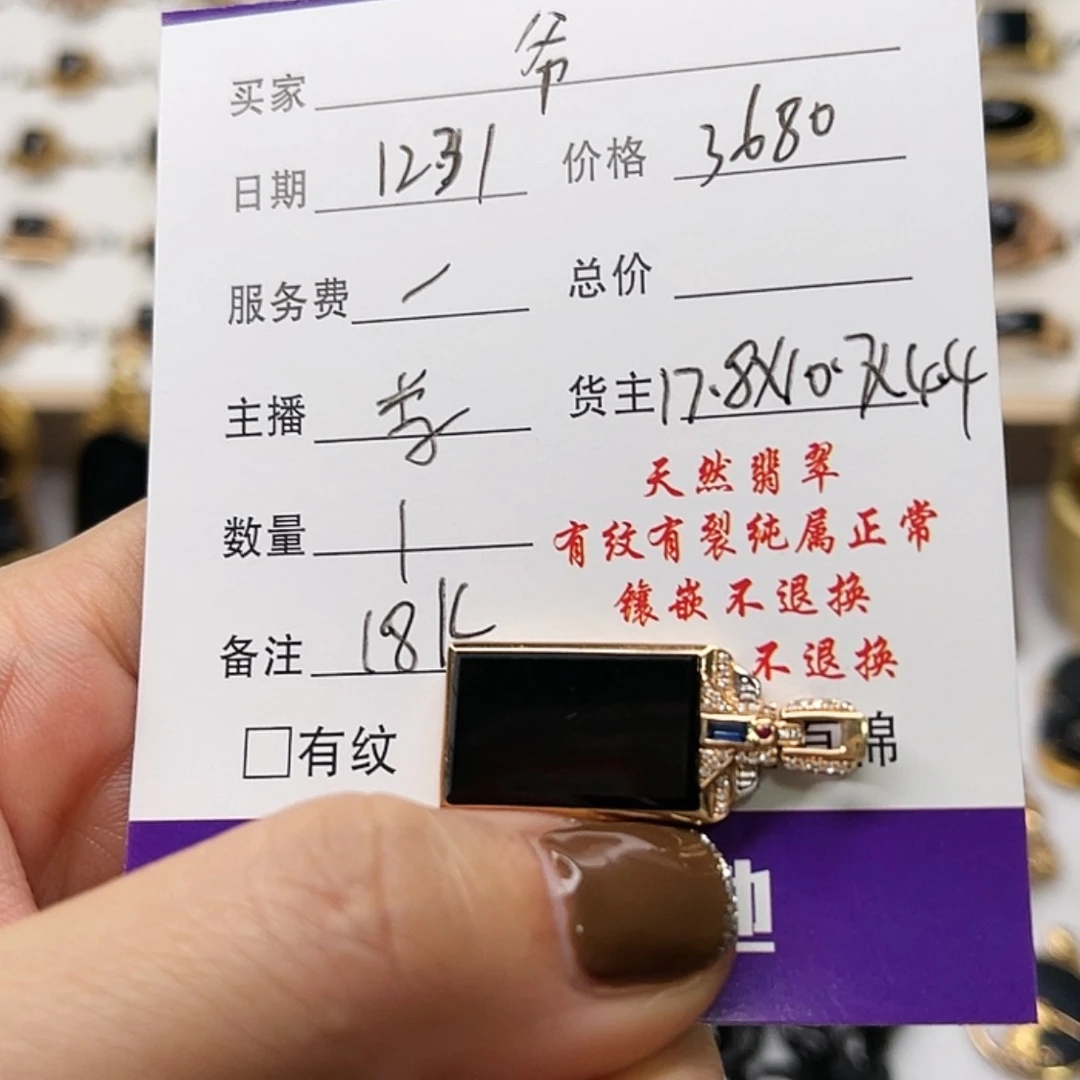 买家 爷
日期 1231 价格 3680
服务费 / 总价
主播 货主 17.8X10.7X4.4
天然翡翠
数量 1
有纹有裂纯属正常
镶嵌不退换
备注 18K
不退换
有纹 棉